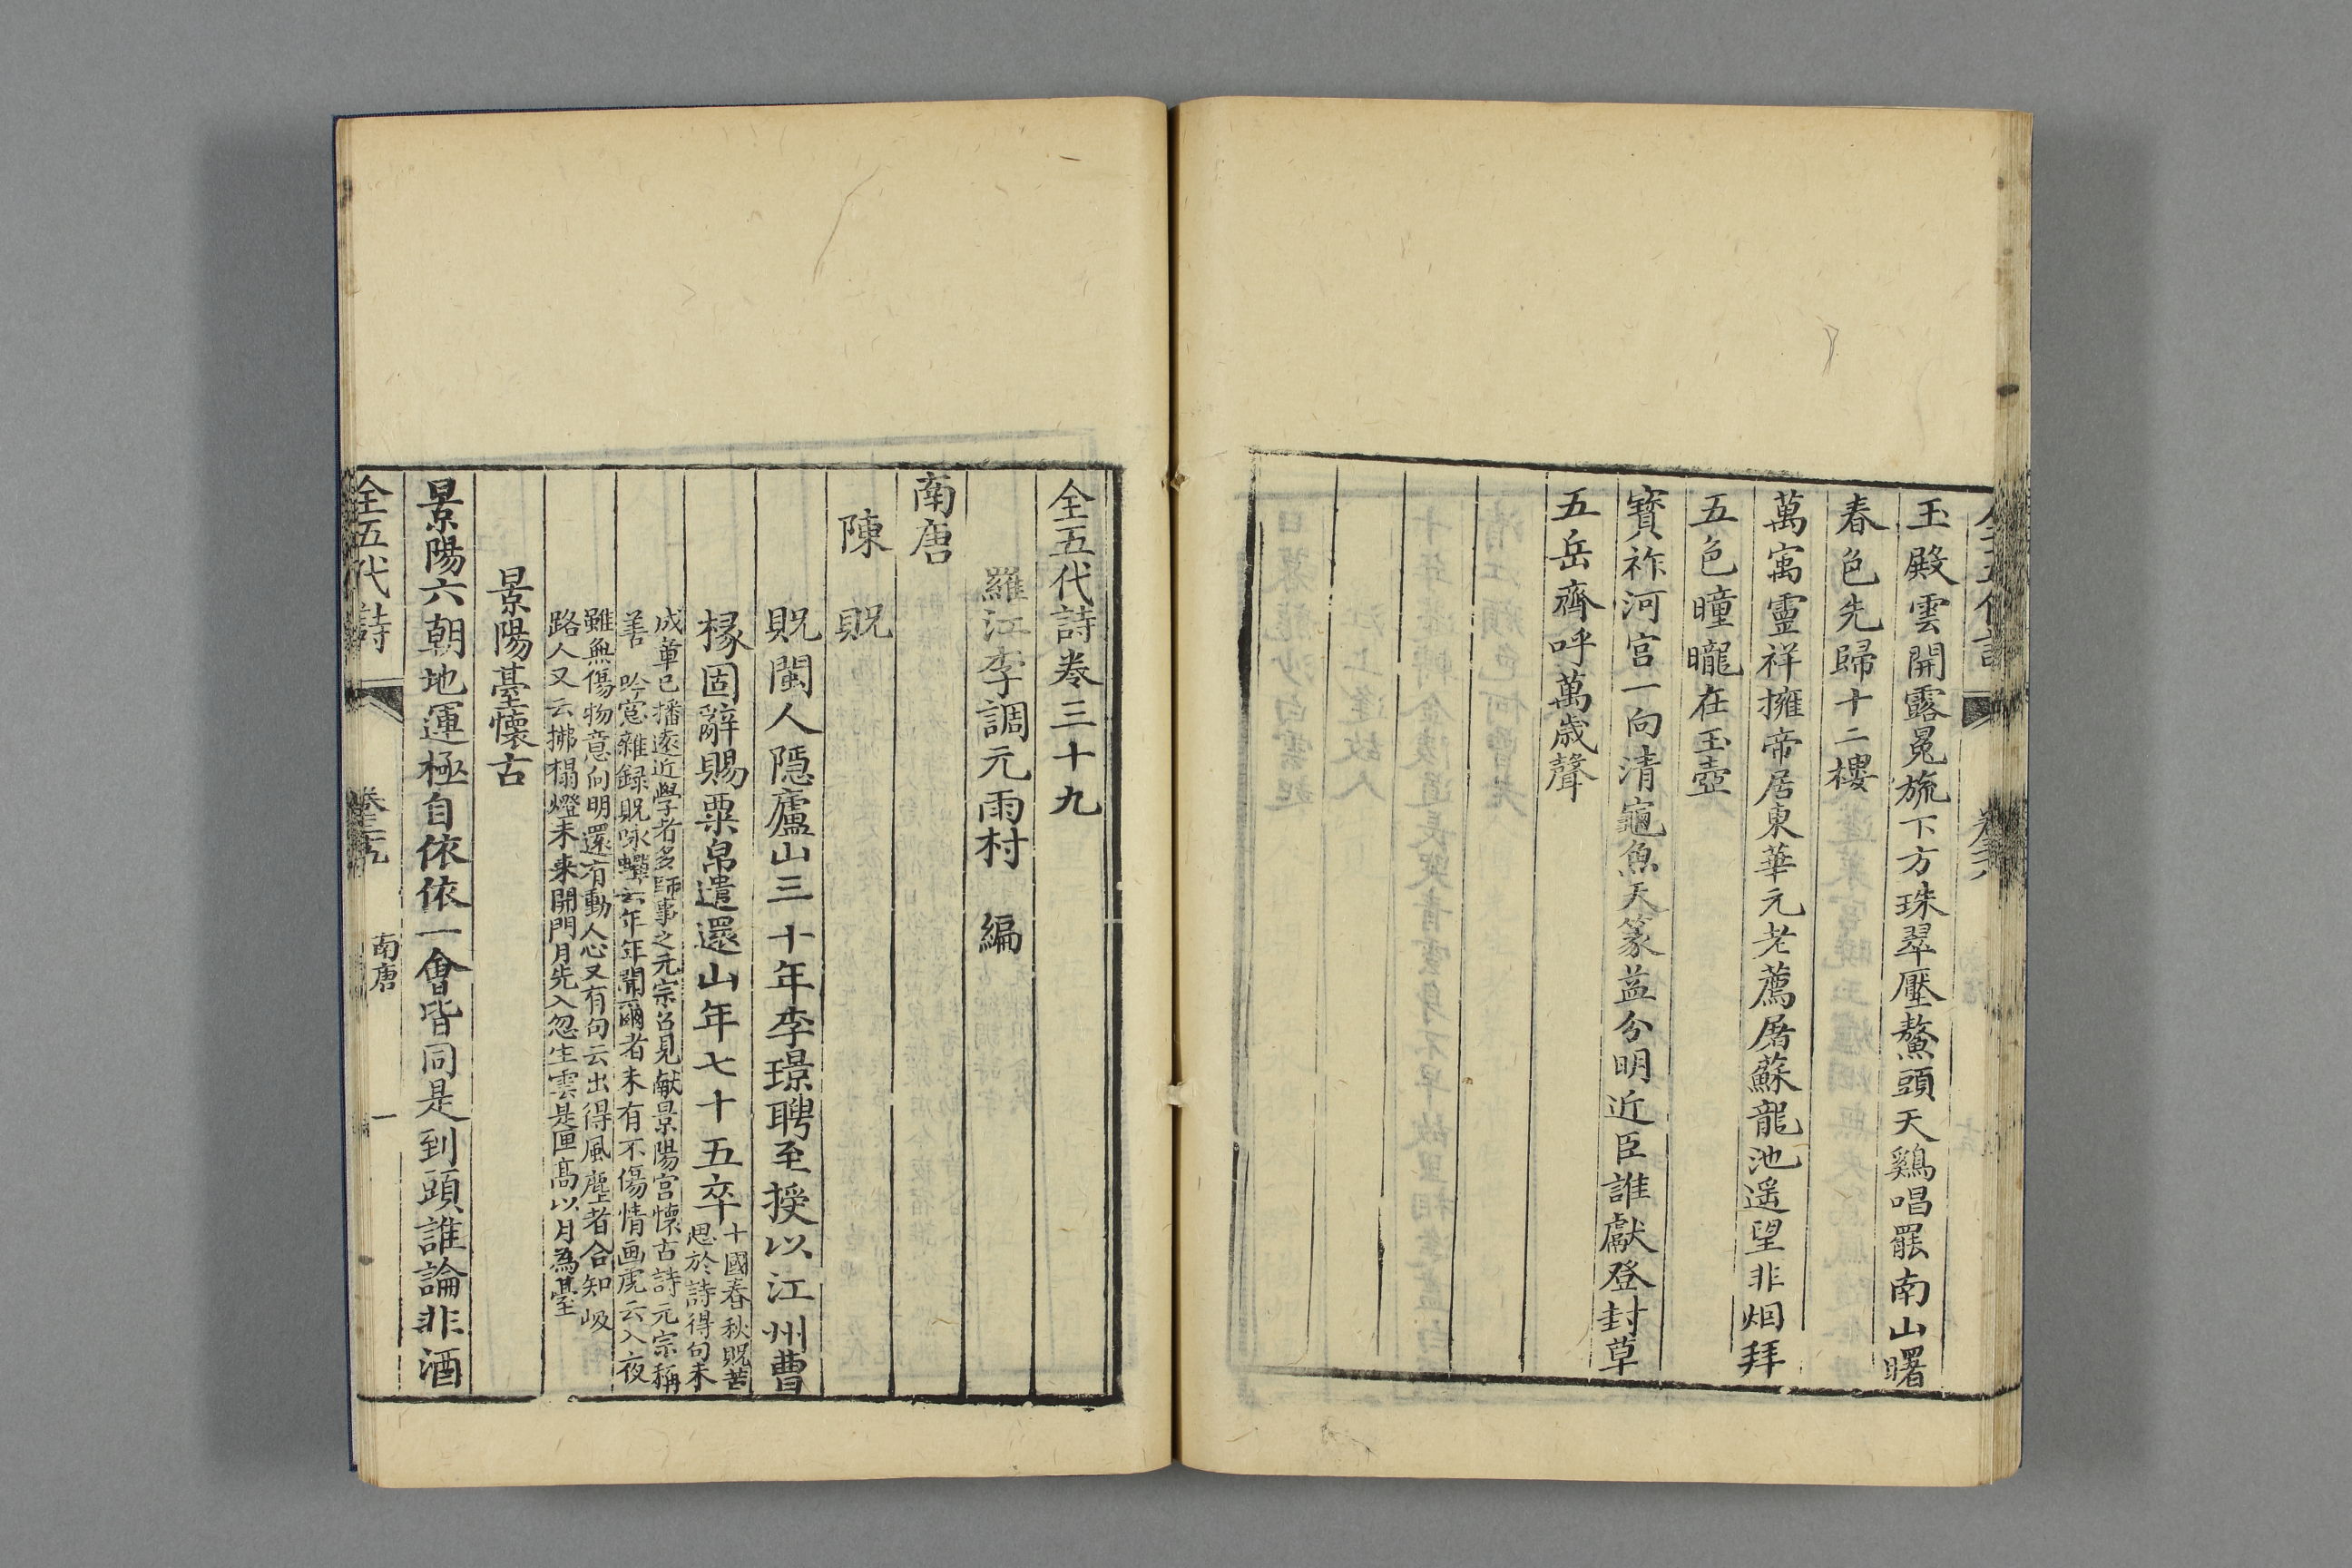 玉殿雲開露冕旒下方珠翠壓鰲頭天鷄唱罷南山曙
春色先歸十二樓
萬寓靈祥擁帝居東華元老薦屠蘇龍池遥望非烟拜
五色曈曨在玉壺
寳祚河宫一向清龜魚天篆益分明近臣誰獻登封草
五岳齊呼萬歳聲
全五代詩卷三十九
羅江李調元雨村 編
南唐
陳 貺
貺閩人隱廬山三十年李璟聘至授以江州曹
椽固辭賜粟帛遣還山年七十五卒
十國春秋貺苦
思於詩得句未
成章已播遠近學者多師事之元宗召見献景陽宫懷古詩元宗稱
善 吟窓雜録貺咏蟬云年年聞爾者未有不傷情画虎云入夜
雖無傷物意向明還有動人心又有句云出得風塵者合知岐
路人又云拂榻燈未来開門月先入忽生雲是匣髙以月為臺
景陽臺懷古
景陽六朝地運極自依依一會皆同是到頭誰論非酒
全五代詩
南唐
一